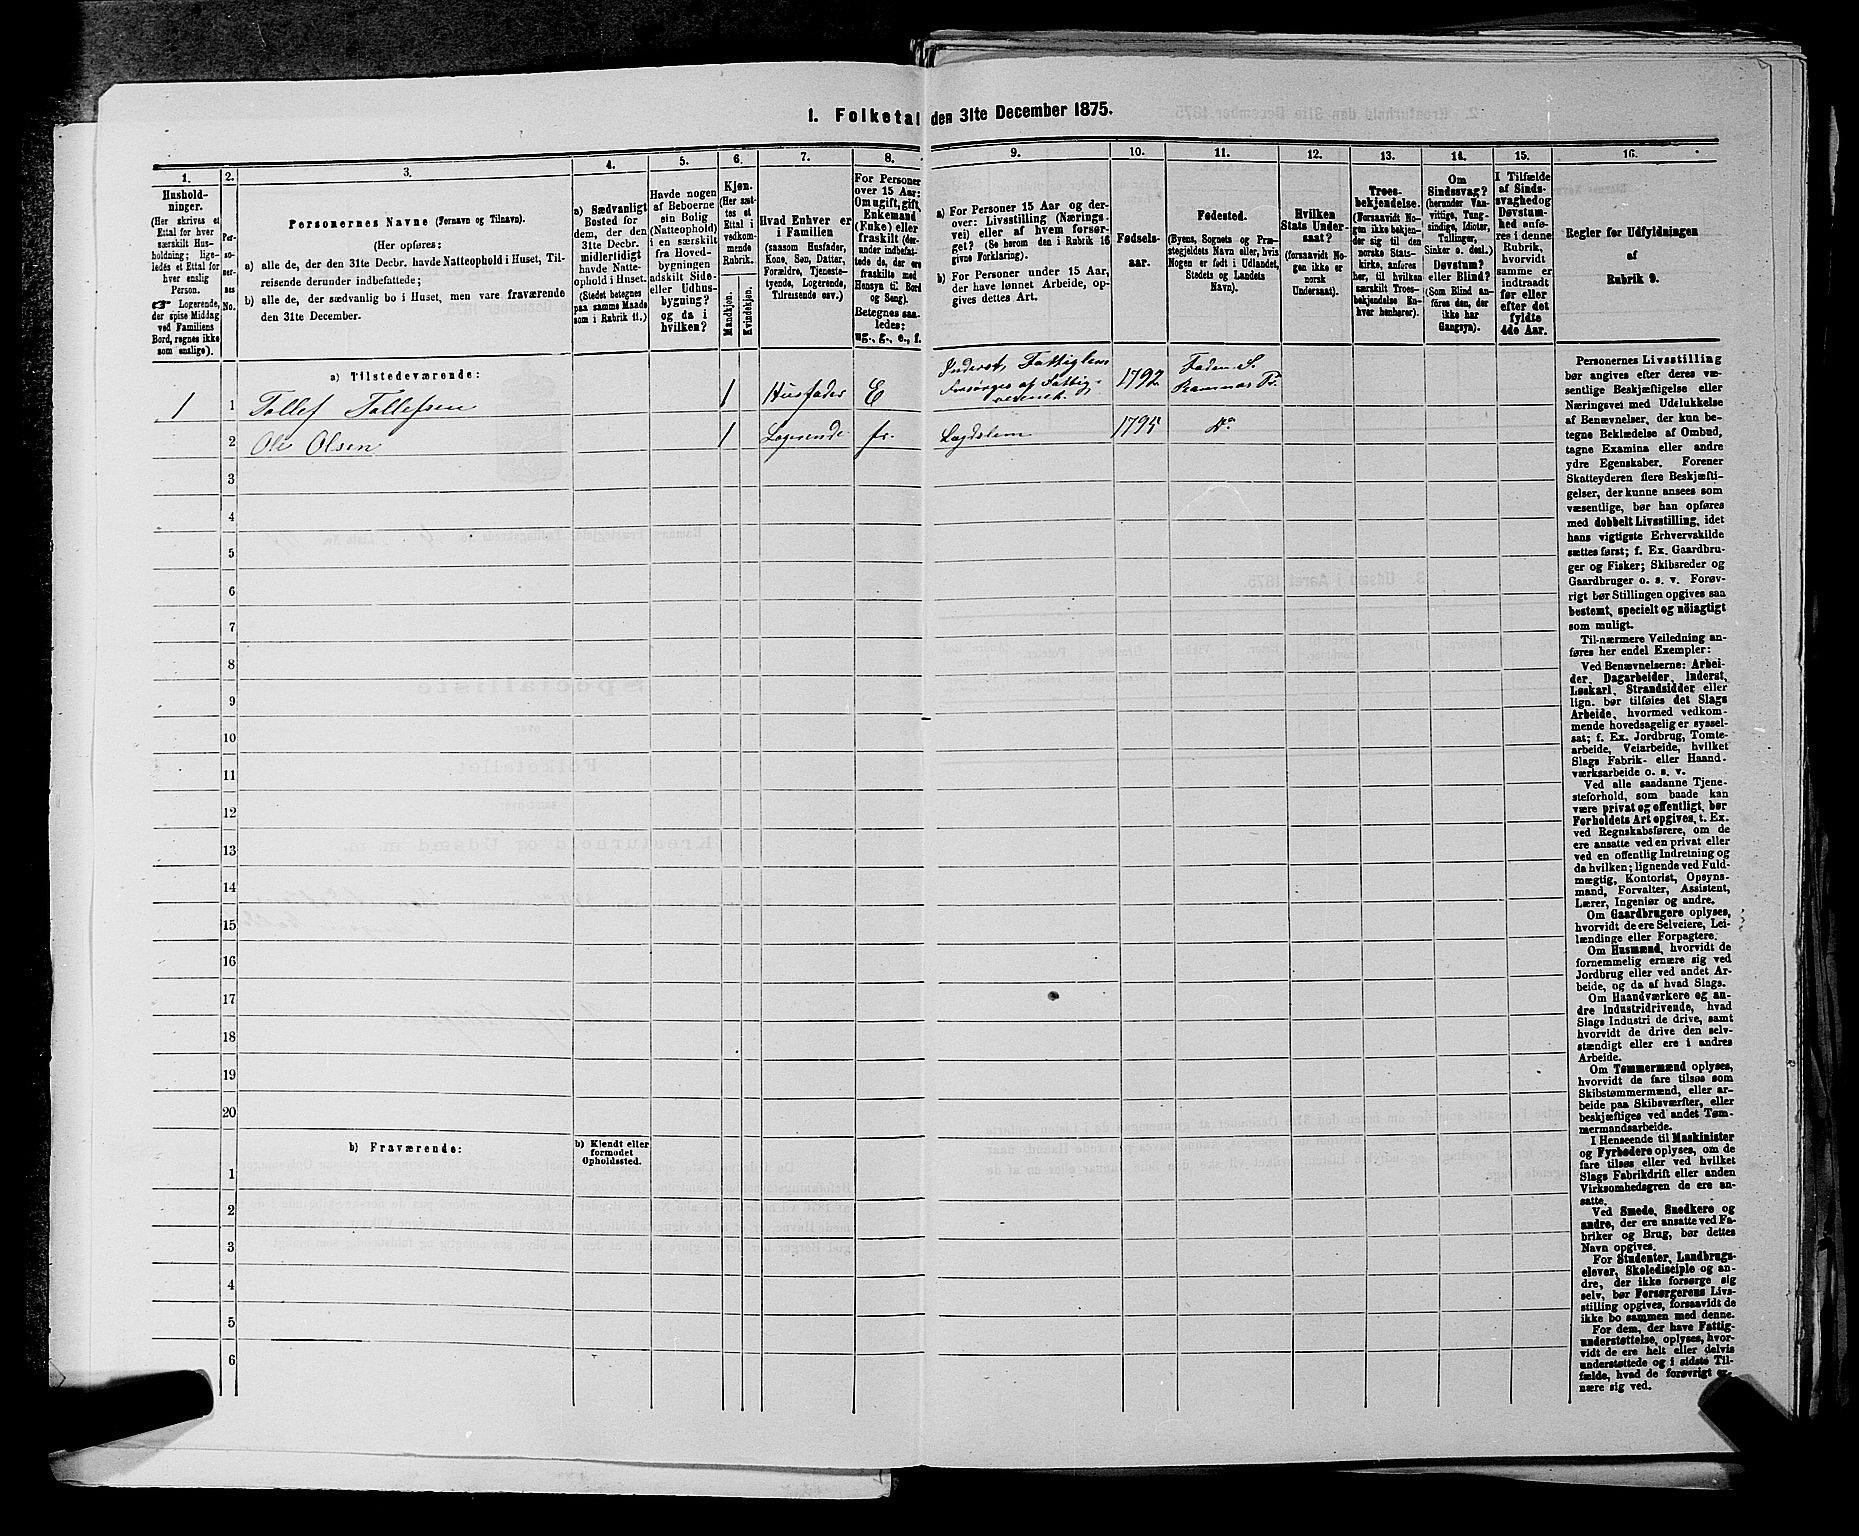 1. Folketal den 31te December 1875.
1.
Hushold-
ninger.
(Her skrives et
Ettal for hver
særskilt Hus-
holdning; lige-
ledes et Ettal for
hver enslig
Person.
☞ Logerende,
der spise Middag
ved Familiens
Bord, regnes ikke
som enslige).
2.
Per-
so-
ner-
nes
No.
3.
Personernes Navne (Fornavn og Tilnavn).
(Her opføres:
a) alle de, der den 31te Decbr. havde Natteophold i Huset, Til-
reisende derunder indbefattede;
b) alle de, der sædvanlig bo i Huset, men vare fraværende
den 31te December.
4.
a) Sædvanligt
Bosted for
dem, der den
31te Decbr.
midlertidigt
havde Natte-
ophold i Huset.
(Stedet betegnes
paa samme Maade
som i Rubrik 11.)
5.
Havde nogen
af Beboerne
sin Bolig
(Natteophold)
i en særskilt
fra Hoved-
bygningen
adskilt Side-
eller Udhus-
bygning?
og da i
hvilken?
6.
Kjøn.
(Her sæt-
tes et
Ettal i
vedkom-
mende
Rubrik.
Mandkjøn.
Kvindekjøn.
7.
Hvad Enhver er
i Familien
(saasom Husfader,
Kone, Søn, Datter,
Forældre, Tjeneste-
tyende, Logerende,
Tilreisende osv.)
8.
For Personer
over 15 Aar:
Om ugift, gift,
Enkemand
(Enke) eller
fraskilt (der-
under indbefat-
tede de, der ere
fraskilte med
Hensyn til Bord
og Seng).
Betegnes saa-
ledes:
ug., g., e., f.
9.
a) For Personer 15 Aar og der-
over: Livsstilling (Nærings-
vei) eller af hvem forsør-
get? (Se herom den i Rubrik 16
givne Forklaring).
b) For Personer under 15 Aar,
der have lønnet Arbeide, op-
gives dettes Art.
10.
Fødsels-
aar.
11.
Fødested.
(Byens, Sognets og Præ-
stegjeldets Navn eller, hvis
Nogen er født i Udlandet,
Stedets og Landets
Navn).
12.
Hvilken
Stats Under-
saat?
(forsaavidt No-
gen ikke er
norsk
Undersaat).
13.
Troes-
bekjendelse.
(Forsaavidt No-
gen ikke bekjen-
der sig til den
norske Stats-
kirke, anføres
her, til hvilken
særskilt Troes-
bekjendelse En-
hver henhører).
14.
Om
Sindssvag?
(herunder Van-
vittige, Tung-
sindige, Idioter,
Tullinger,
Sinker o. desl.)
Døvstum?
eller Blind?
(Som Blind an-
føres den, der
ikke har
Gangsyn).
15.
I Tilfælde
af Sinds-
svaghed og
Døvstum-
hed anfø-
res i denne
Rubrik,
hvorvidt
samme er
indtraadt
før eller
efter det
fyldte
4de Aar.
16.
Regler for Udfyldningen
af
Rubrik 9.
a) Tilstedeværende:
1 1 Tollef Tollefsen 1 Husfader E Inderst, Fattiglem Forsørges af Fattig- 1792 Ramnas Pr.
2 Ole Olsen 1 Logerende fr. Lægdslem 1795 Do
3
4
5
6
7
8
9
10
11
12
13
14
15
16
17
18
19
20
b) Fraværende:
b) Kjendt eller
formodet
Opholdssted.
1
2
3
4
5
6
Personernes Livsstilling
bør angives efter deres væ-
sentlige Beskjæftigelse eller
Næringsvei med Udelukkelse
af Benævnelser, der kun be-
tegne Beklædelse af Ombud,
tagne Examina eller andre
ydre Egenskaber. Forener
Skatteyderen flere Beskjæfti-
gelser, der kunne ansees som
væsentlige, bør han opføres
med dobbelt Livsstilling, idet
hans vigtigste Erhvervskilde
sættes først; f. Ex. Gaardbru-
ger og Fisker; Skibsreder og
Gaardbruger o. s. v. Forøv-
rigt bør Stillingen opgives saa
bestemt, specielt og nöiagtigt
som muligt.
Til nærmere Veiledning an-
føres her endel Exempler:
Ved Benævnelserne: Arbei-
der, Dagarbeider, Inderst,
Løskarl, Strandsidder eller
lign. bør tilføies det Slags
Arbeide, hvormed vedkom-
mende hovedsagelig er syssel-
sat; f. Ex. Jordbrug, Tomte-
arbeide, Veiarbeide, hvilket
Slags Fabrik- eller Haand-
værksarbeide o. s. v.
Ved alle saadanne Tjene-
steforhold, som baade kan
være privat og offentligt, bør
Forholdets Art opgives, t. Ex.
ved Regnskabsførere, om de
ere ansatte ved en privat eller
ved en offentlig Indretning og
da hvilken; lignende ved Fuld-
mægtig, Kontorist, Opsyns-
mand, Forvalter, Assistent,
Lærer, Ingeniør og andre.
Om Gaardbrugere oplyses,
hvorvidt de ere Selveiere, Lei-
lændinge eller Forpagtere.
Om Husmænd, hvorvidt de
fornemmelig ernære sig ved
Jordbrug eller ved andet Ar-
beide, og da af hvad Slags.
Om Haandværkere og an-
dre Industridrivende, hvad
Slags Industri de drive, samt
hvorvidt de drive den selv-
stændigt eller ere i andres
Arbeide.
Om Tømmermænd oplyses,
hvorvidt de fare tilsøs som
Skibstømmermænd, eller ar-
beide paa Skibsværfter, eller
beskjæftiges ved andet Tøm-
mermandsarbeide.
I Henseende til Maskinister
og Fyrbødere oplyses, om de
fare tilsøs eller ved hvilket
Slags Fabrikdrift eller anden
Virksomhedsgren de ere an-
satte.
Ved Smede, Snedkere og
andre, der ere ansatte ved Fa-
briker og Brug, bør dettes
Navn opgives.
For Studenter, Landbrugs-
elever, Skoledisciple og an-
dre, der ikke forsørge sig
selv, bør Forsørgerens Livs-
stilling opgives, forsaavidt de
ikke bo sammen med denne.
For dem, der have Fattig-
understøttelse, oplyses, hvor-
vidt de ere helt eller delvis
understøttede og i sidste Til-
fælde, hvad de forøvrigt er-
nære sig ved.